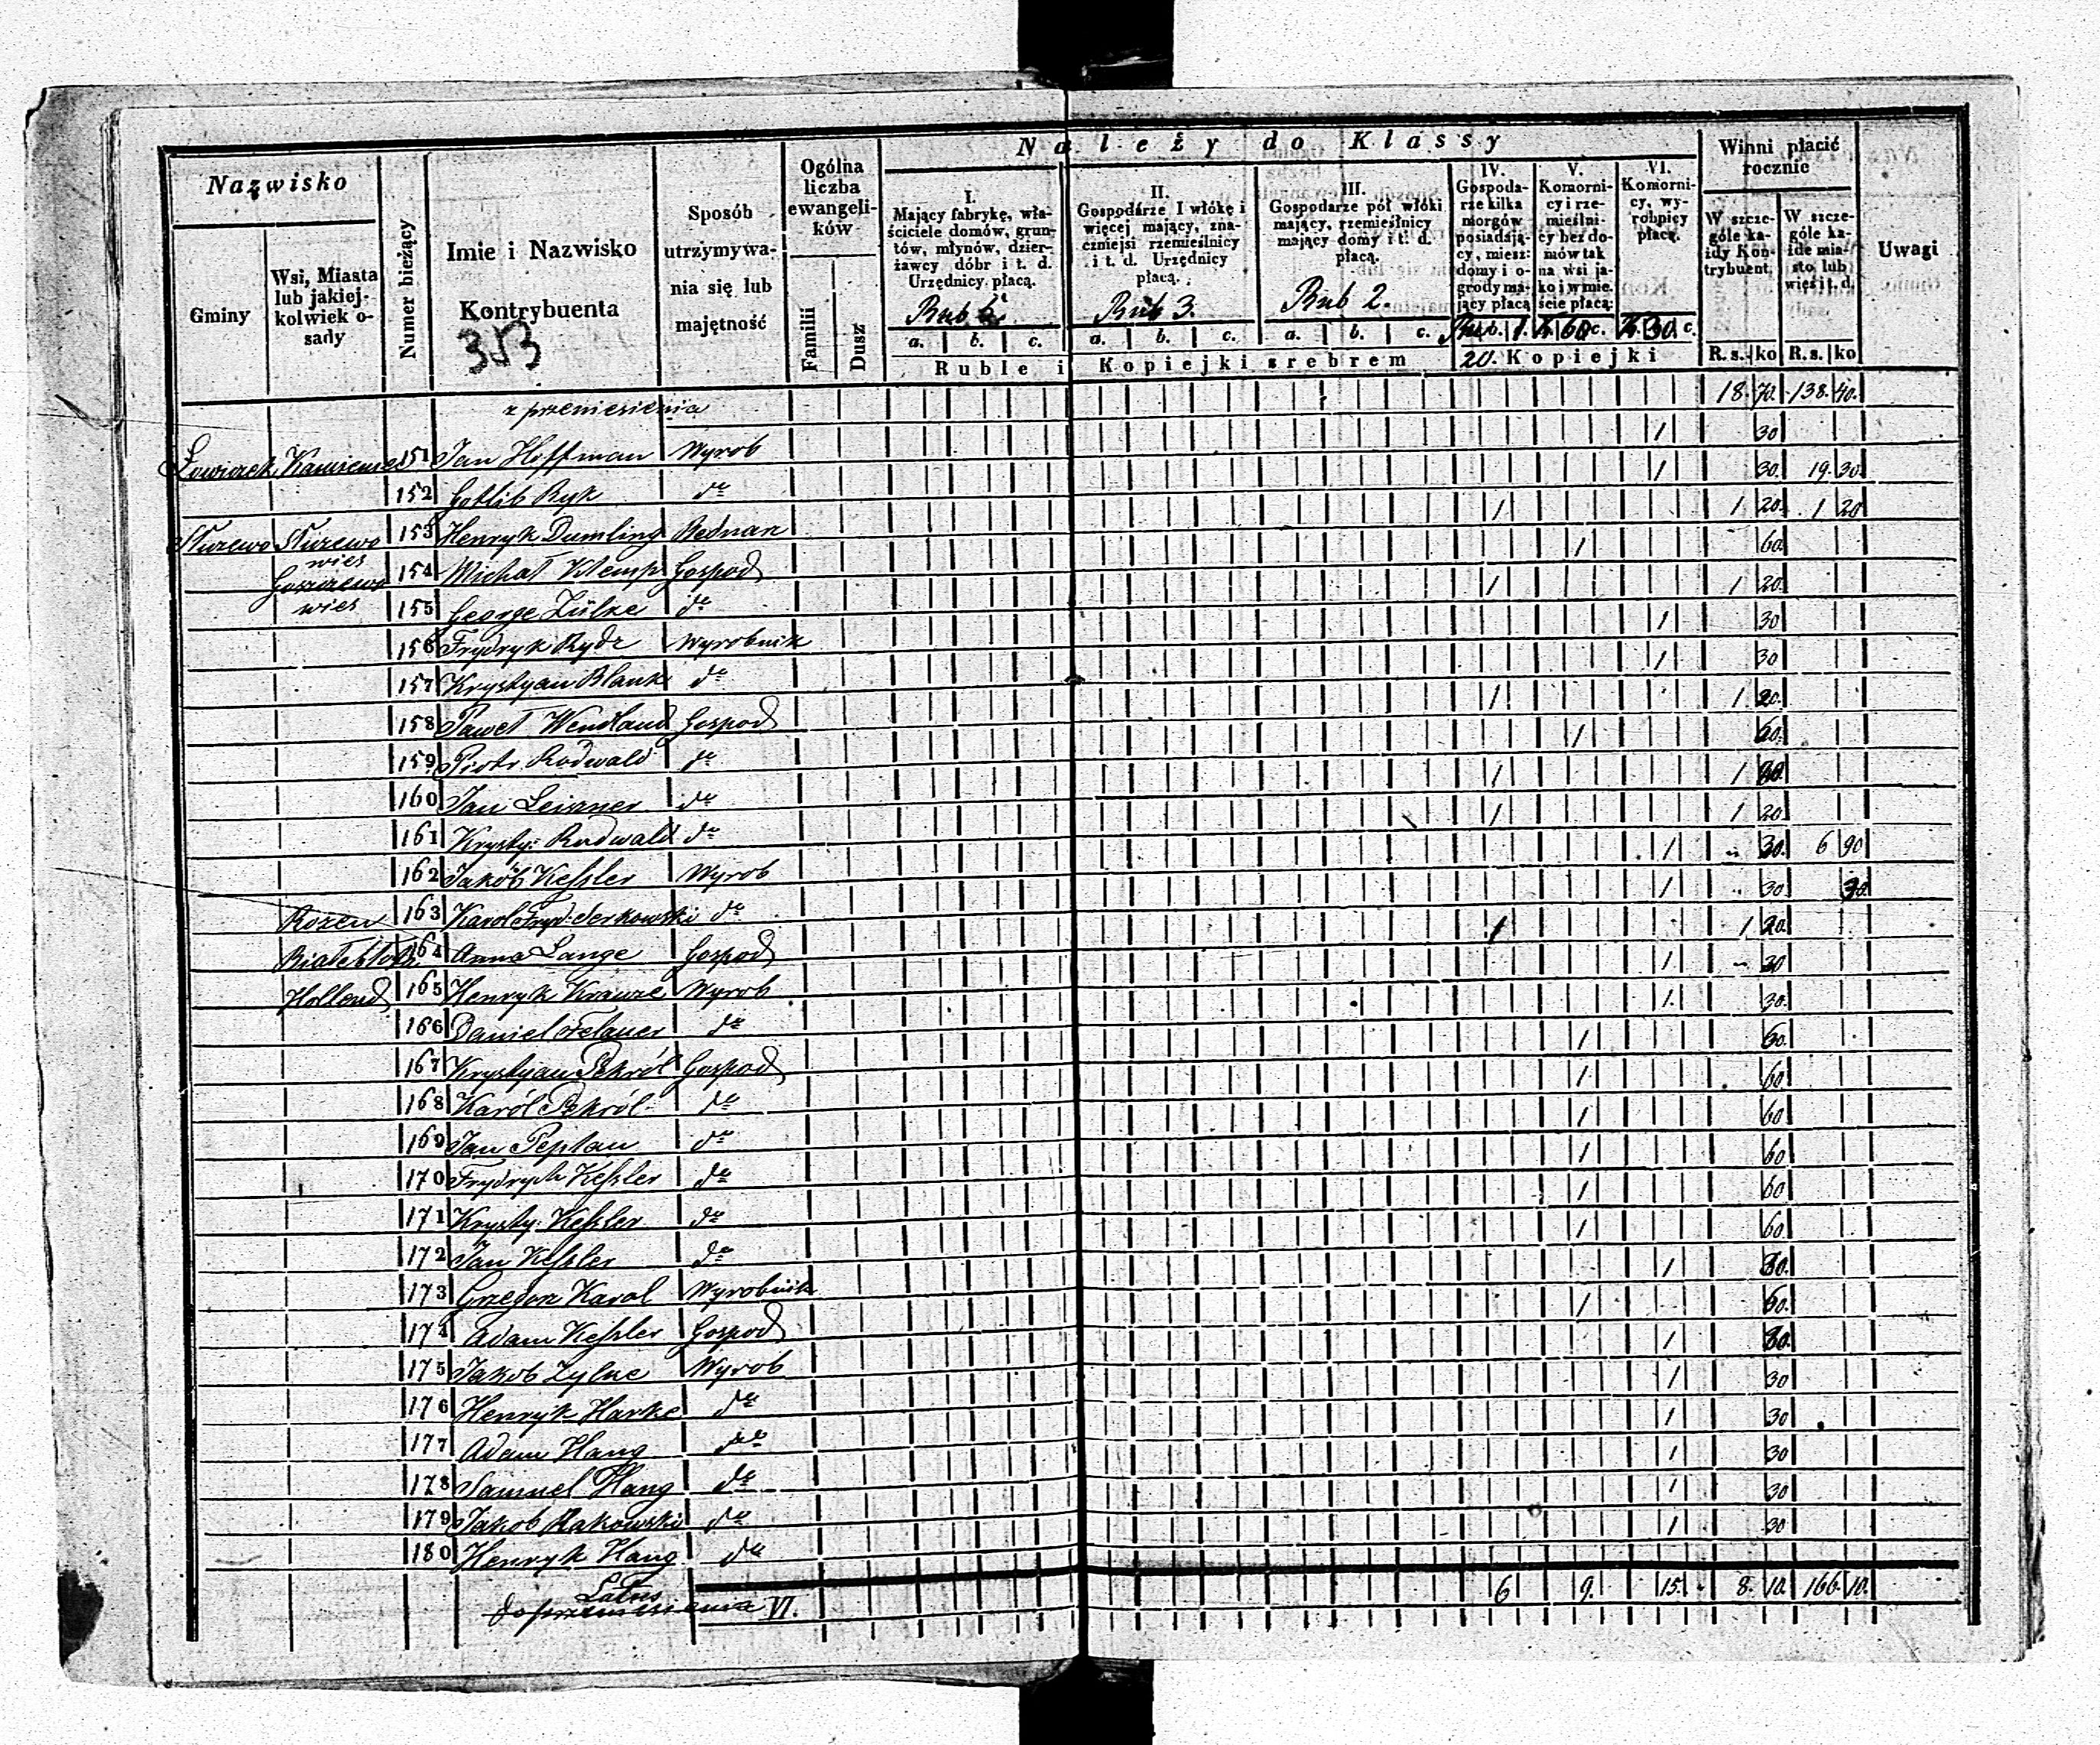 Należy do Klassy
Nazwisko
Gminy
Wsi, Miasta lub jakiejkolwiek osady
Numer bieżący
Imie i Nazwisko
Kontrybuenta
353
Sposób utrzymywania się lub majętność
Ogólna liczba ewangelików
Familii
Dusz
I. Mający fabrykę, właściciele domów, gruntów, młynów, dzierżawcy dóbr i t. d. Urzędnicy płacą.
Rub
II. Gospodarze I włókę i więcej mający, znaczniejsi rzemieślnicy i t. d. Urzędnicy płacą.
Rub 3.
III. Gospodarze pół włóki mający, rzemieślnicy mający domy i t. d. płacą.
Rub 2.
IV. Gospodarze kilka morgów posiadający, miesz: domy i ogrody mający płacą
Rub. 1. 20.
V. Komornicy i rzemieślnicy bez domów tak na wsi jako i w mieście płacą:
K. 60 c.
VI. Komornicy, wyrobnicy płacą.
K. 30. c.
Winni płacić rocznie
W szczególe każdy Kontrybuent.
W szczególe każde miasto lub wieś i t. d.
Uwagi
a. b. c. a. b. c. a. b. c.
Ruble i Kopiejki srebrem Kopiejki R. s. ko R. s. ko
z przeniesienia 18. 70. 138. 40.
151 Jan Hoffman Wyrob 1 30
152 Gotlib Ryk do 1 30. 19. 30
Służewo Służewo 153 Henryk Dumling Bednarz 1 1 20. 1 20
wies
154 Michał Klemp Gospod 1 60.
wies 155 George Zülke do 1 1 20.
156 Frydryk Rydz Wyrobnik 1 30
157 Krystyan Blank do 1 30
158 Paweł Wendland Gospod 1 1 20.
159 Piotr Rodwald do 1 60.
160 Jan Leiszner do 1 1 20.
161 Krysty: Rudwald do 1 1 20
162 Jakób Keßler Wyrob 1 30. 6 90
Rozen 163 Karol Fryd: Serkowski do 1 30 30
164 Anna Lange Gospod 1 1 20.
Holland 165 Henryk Krauze Wyrob 1 30
166 Daniel do 1. 30.
167 Krystyan Gospod 1 60.
168 Karól do 1 60
169 Jan Peplau do 1 60
170 Frydrych Keßler do 1 60
171 Krysty: Keßler do 1 60
172 Jan Keßler do 1 60.
173 Grzegorz Karol Wyrobnik 1 30.
174 Adam Keßler Gospod 1 60.
175 Jakob Zylke Wyrob 1 30.
176 Henryk Harke do 1 30
177 Adam Hang do 1 30
178 Samuel Hang do 1 30
179 Jakob Makowski do 1 30
180 Henryk Hang do 1 30
Latus
do przeniesienia VI. 6 9. 15. 8. 10. 166. 10.